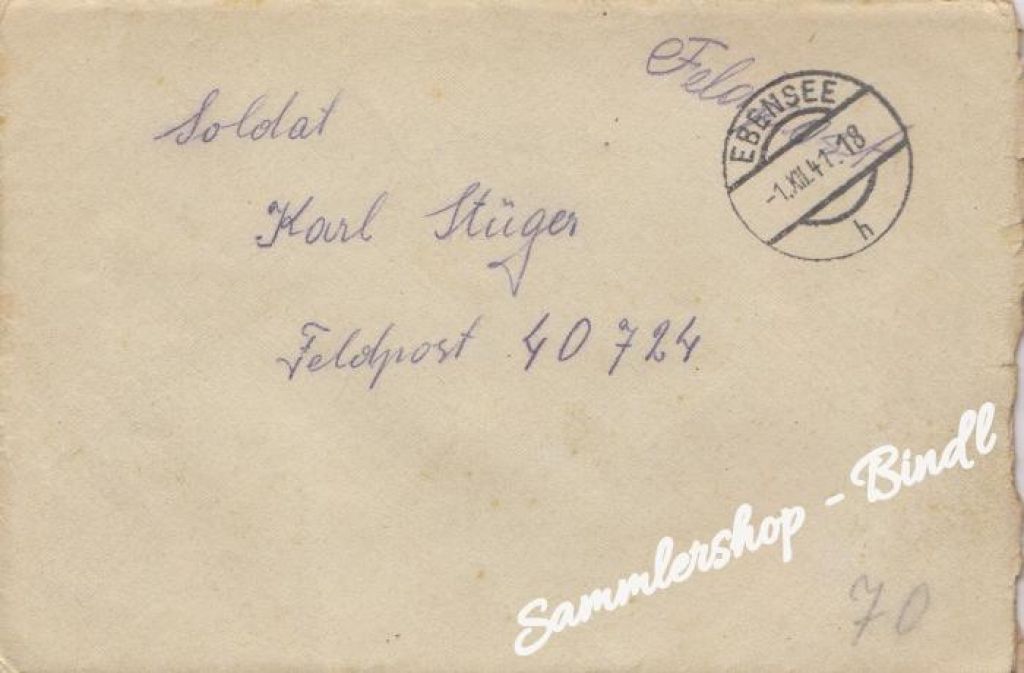 Feldpost
EBENSEE
-1.XII.41.18
h
Soldat
Karl Stüger
Feldpost 40724
Sammlershop - Bindl
70